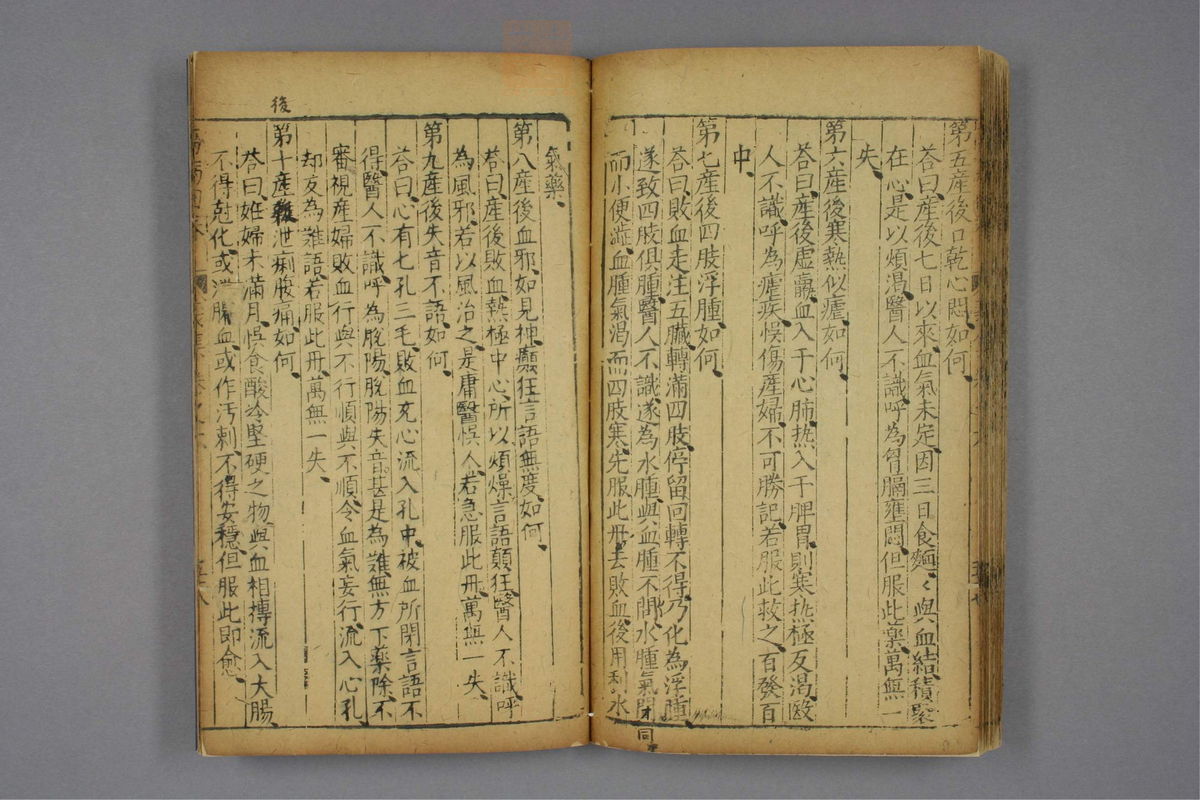 第五產後口乾心悶如何
荅曰產後七日以來血氣未定因三日食麵〻與血結積聚
在心是以煩渴醫人不識呼為胷膈壅悶但服此藥萬無一
失
第六產後寒熱似瘧如何
荅曰產後虛羸血入于心肺热入于脾胃則寒热極反渴毆
人不識呼為瘧疾悞傷產婦不可勝記若服此救之百發百
中
第七產後四肢浮腫如何
荅曰敗血走注五臟轉滿四肢停留回轉不得乃化為浮腫
遂致四肢俱腫醫人不識遂為水腫與血腫不問水腫氣閉
而小便澁血腫氣渴而四肢寒先服此丹去敗血後用利水
不同
氣藥
第八產後血邪如見神癲狂言語無度如何
荅曰產後敗血熱極中心所以煩燥言語顛狂醫人不識呼
為風邪若以風治之是庸醫悞人若急服此丹萬無一失
第九產後失音不語如何
荅曰心有七孔三毛敗血充心流入孔中被血所閉言語不
得醫人不識呼為脫陽脫陽失音甚是為難無方下藥除不
審視產婦敗血行與不行順與不順令血氣妄行流入心孔
却反為難語若服此丹萬無一失
後
第十產泄痢腹痛如何
荅曰姙婦未滿月悞食酸冷堅硬之物與血相摶流入大腸
不得尅化或泄膿血或作汚刺不得安穩但服此即愈